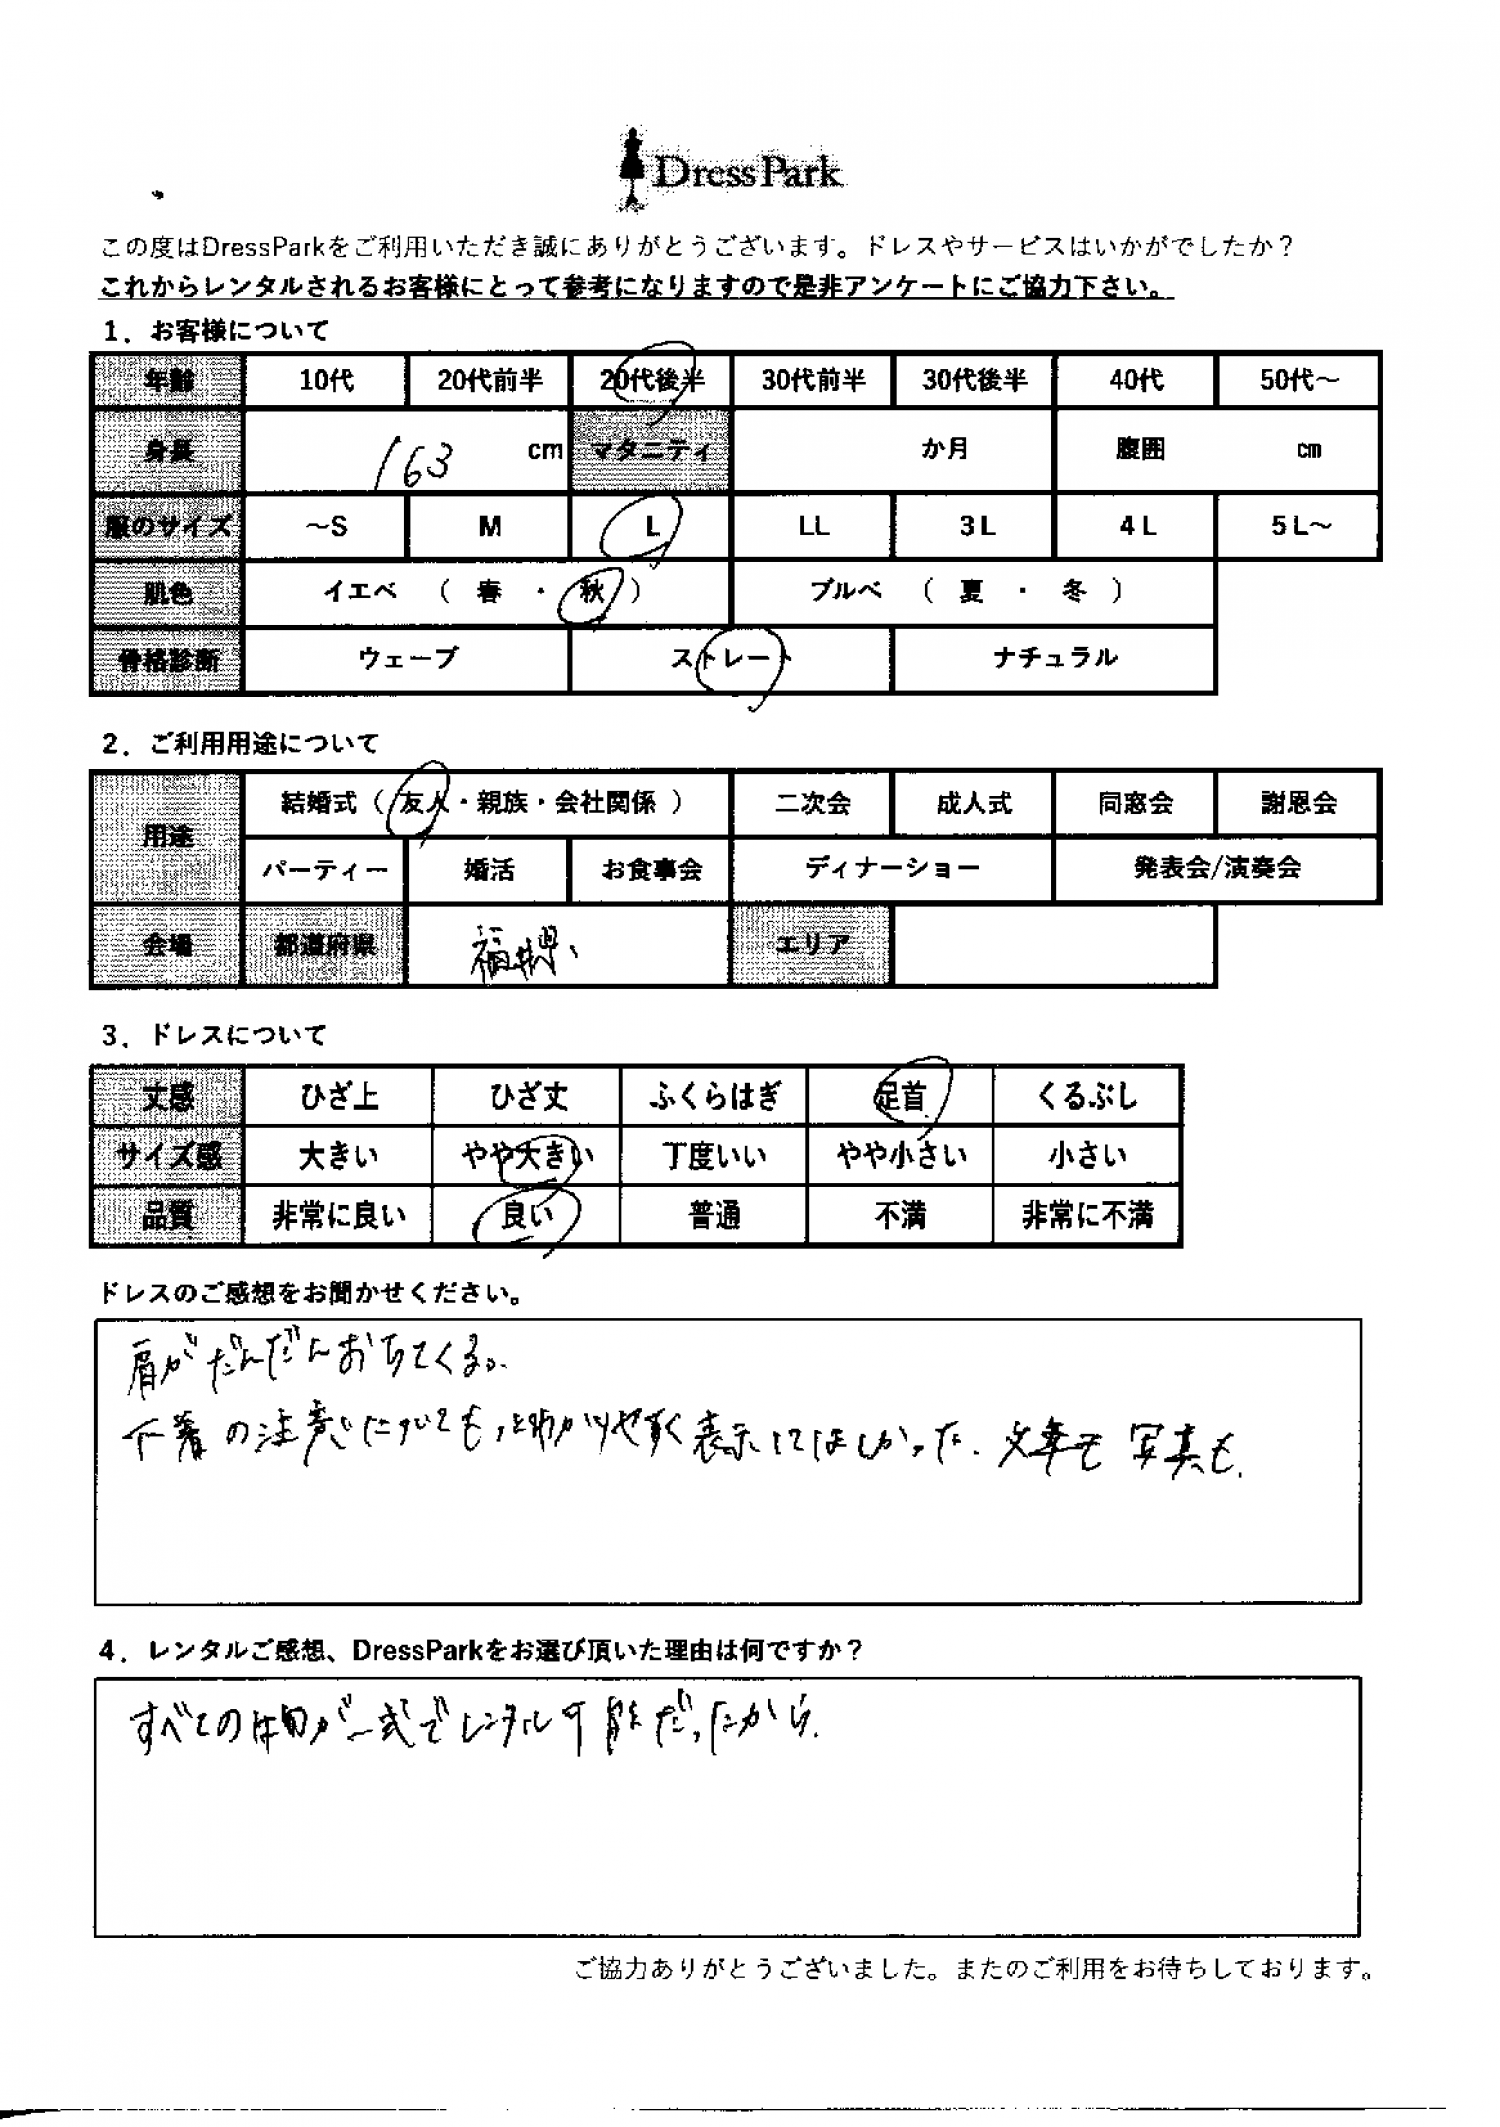 DressPark
この度はDressParkをご利用いただき誠にありがとうございます。ドレスやサービスはいかがでしたか？
これからレンタルされるお客様にとって参考になりますので是非アンケートにご協力下さい。
1．お客様について
年齢 10代 20代前半 20代後半 30代前半 30代後半 40代 50代～
身長 163 cm マタニティ か月 腹囲 cm
服のサイズ ～S M L LL 3L 4L 5L～
肌色 イエベ （ 春 ・ 秋 ） ブルベ （ 夏 ・ 冬 ）
骨格診断 ウェーブ ストレート ナチュラル
2．ご利用用途について
用途 結婚式（ 友人・親族・会社関係 ） 二次会 成人式 同窓会 謝恩会
パーティー 婚活 お食事会 ディナーショー 発表会/演奏会
会場 都道府県 福井県 エリア
3．ドレスについて
丈感 ひざ上 ひざ丈 ふくらはぎ 足首 くるぶし
サイズ感 大きい やや大きい 丁度いい やや小さい 小さい
品質 非常に良い 良い 普通 不満 非常に不満
ドレスのご感想をお聞かせください。
肩がだんだんおちてくる。
下着の注意についてもっとわかりやすく表示してほしかった。文章も写真も。
4．レンタルご感想、DressParkをお選び頂いた理由は何ですか？
すべての が一式でレンタル可能だったから。
ご協力ありがとうございました。またのご利用をお待ちしております。